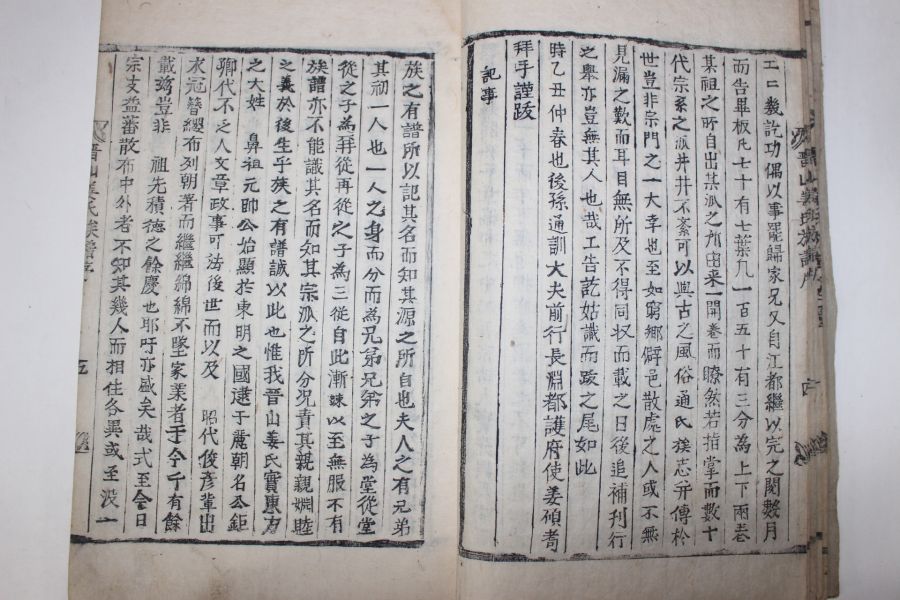 工二幾訖功偶以事罷歸家兄又自江都繼以完之閱數月
而告畢板凡七十有七葉凡一百五十有三分為上下兩卷
某祖之所自出某派之所由来一開卷而瞭然若指掌而數十
代宗系之派井井不紊可以與古之風俗通氏族志并傳於
世豈非宗門之一大幸也至如窮鄉僻邑散處之人或不無
見漏之歎而耳目無所及不得同收而載之日後追補刊行
之舉亦豈無其人也哉工告訖姑識而跋之尾如此
時乙丑仲春也後孫通訓大夫前行長淵都護府使姜碩耉
拜手謹跋
記事
族之有譜所以記其名而知其源之所自也夫人之有兄弟
其初一人也一人之身而分而為兄弟兄弟之子為堂從堂
從之子為再從再從之子為三從自此漸踈以至無服不有
族譜亦不能識其名而知其宗派之所分况責其親親婣睦
之義於後生乎族之有譜誠以此也惟我晋山姜氏實東方
之大姓 鼻祖元帥公始顯於東明之國逮于麗朝名公鉅
卿代不乏人文章政事可法後世而以及 昭代俊彦軰出
衣冠簪纓布列朝著而繼繼綿綿不墜家業者于今有餘
載玆豈非 祖先積德之餘慶也耶吁亦盛矣哉式至今日
宗支益蕃散布中外者不知其幾人而相住各異或至没一
晋山姜氏族譜序
五